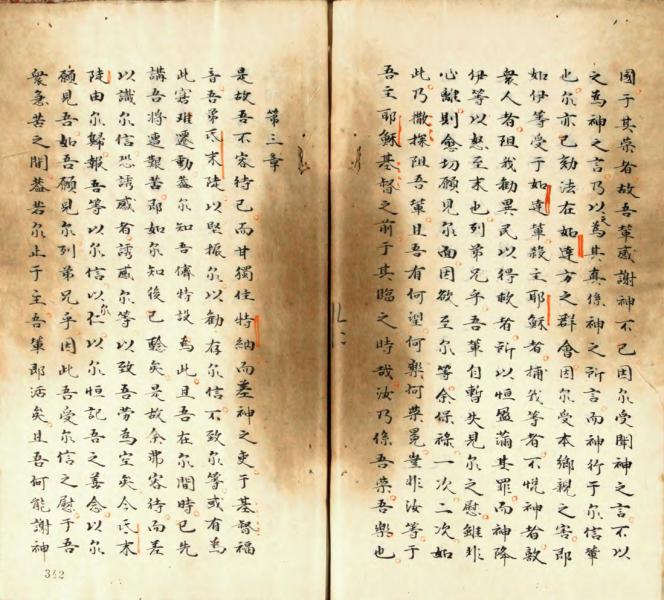 國于其榮者故吾輩感謝神不已因尔受聞神之言不以
之為神之言乃以之為其真係神之所言而神行于尔信輩
也尔亦已効法在如達方之群會因尔受本鄉親之害即
如伊等受于如達輩殺主耶穌者捕我等者不悅神者敵
衆人者阻我勸異民以得救者所以恒盈滿其罪而神降
伊等以怒至末也列弟兄乎吾輩自暫失見尔之慰雖非
心離則愈切願見尔面因欲至尔等余保祿一次二次如
此乃撒探阻吾輩且吾有何望何樂何榮冕豈非汝等于
吾主耶穌基督之前于其臨之時哉汝乃係吾榮吾樂也
第三章
是故吾不容待已而甘獨住特納而差神之吏于基督福
音吾弟氐末陡以堅振尔以勸存尔信不致尔等或有為
此害难遷動蓋尔知吾儕特設為此且吾在尔間時已先
講吾將遭艱苦即如尔知後已驗矣是故余弗容待而差
以識尔信恐誘惑者誘惑尔等以致吾勞為空矣今氐末
陡由尔歸報吾等以尔信以尔仁以尔恒記吾之善念以尔
願見吾如吾願見尔列弟兄乎因此吾受尔信之慰于吾
衆急苦之間蓋若尔止于主吾輩即活矣且吾何能謝神
342